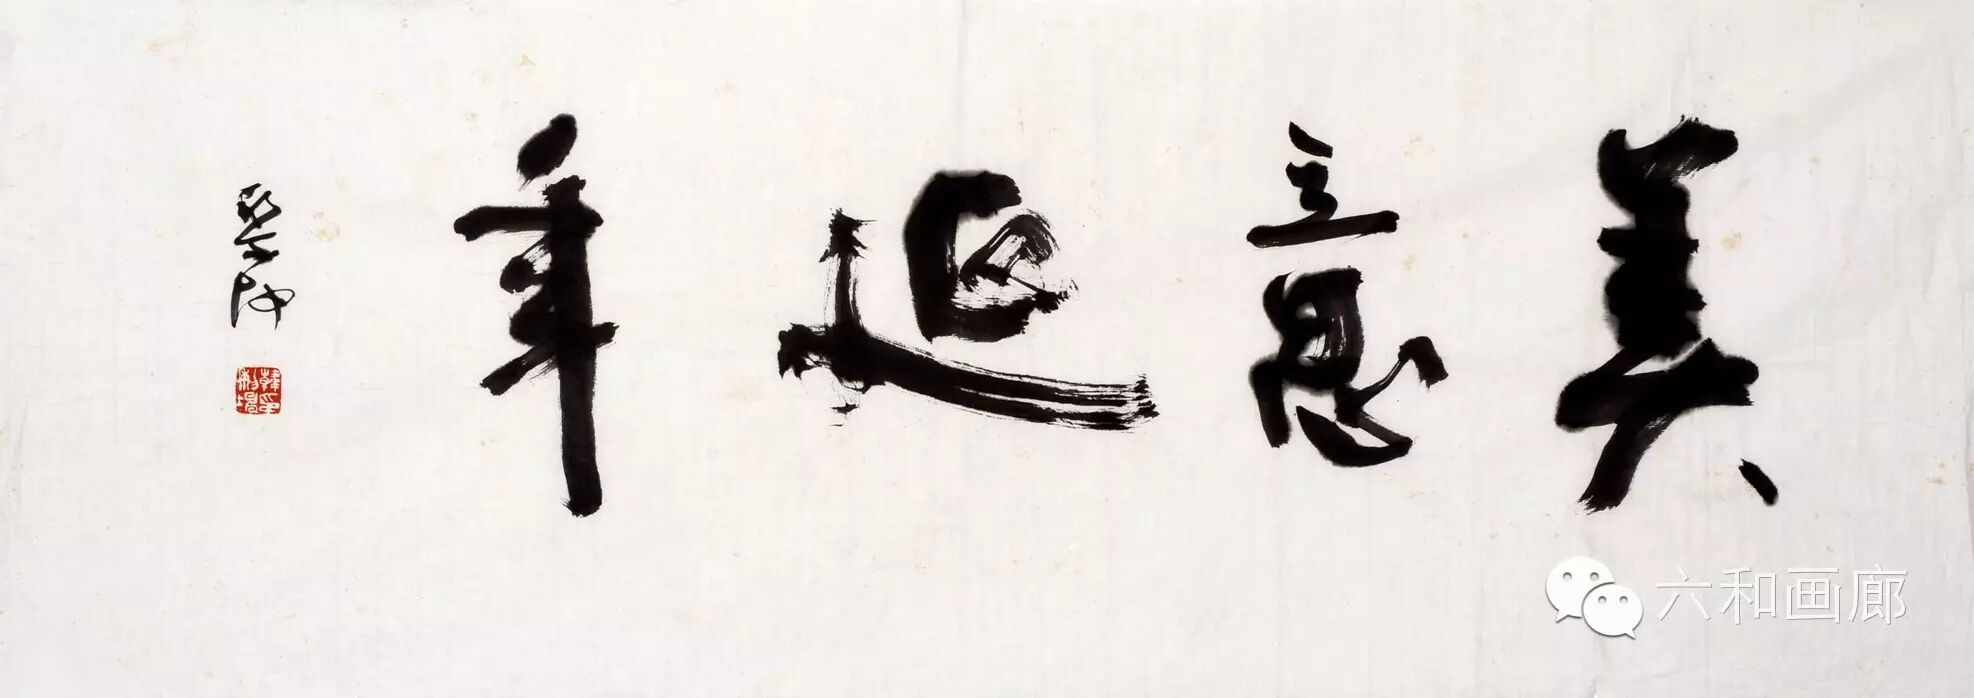 美意延年
六和画廊